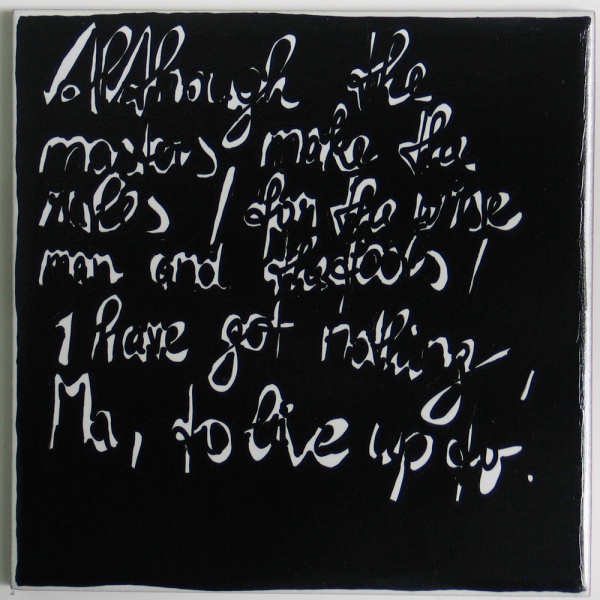 Although the
masters make the
rules / for the wise
man and the fools /
I have got nothing,
Ma, to live up to.